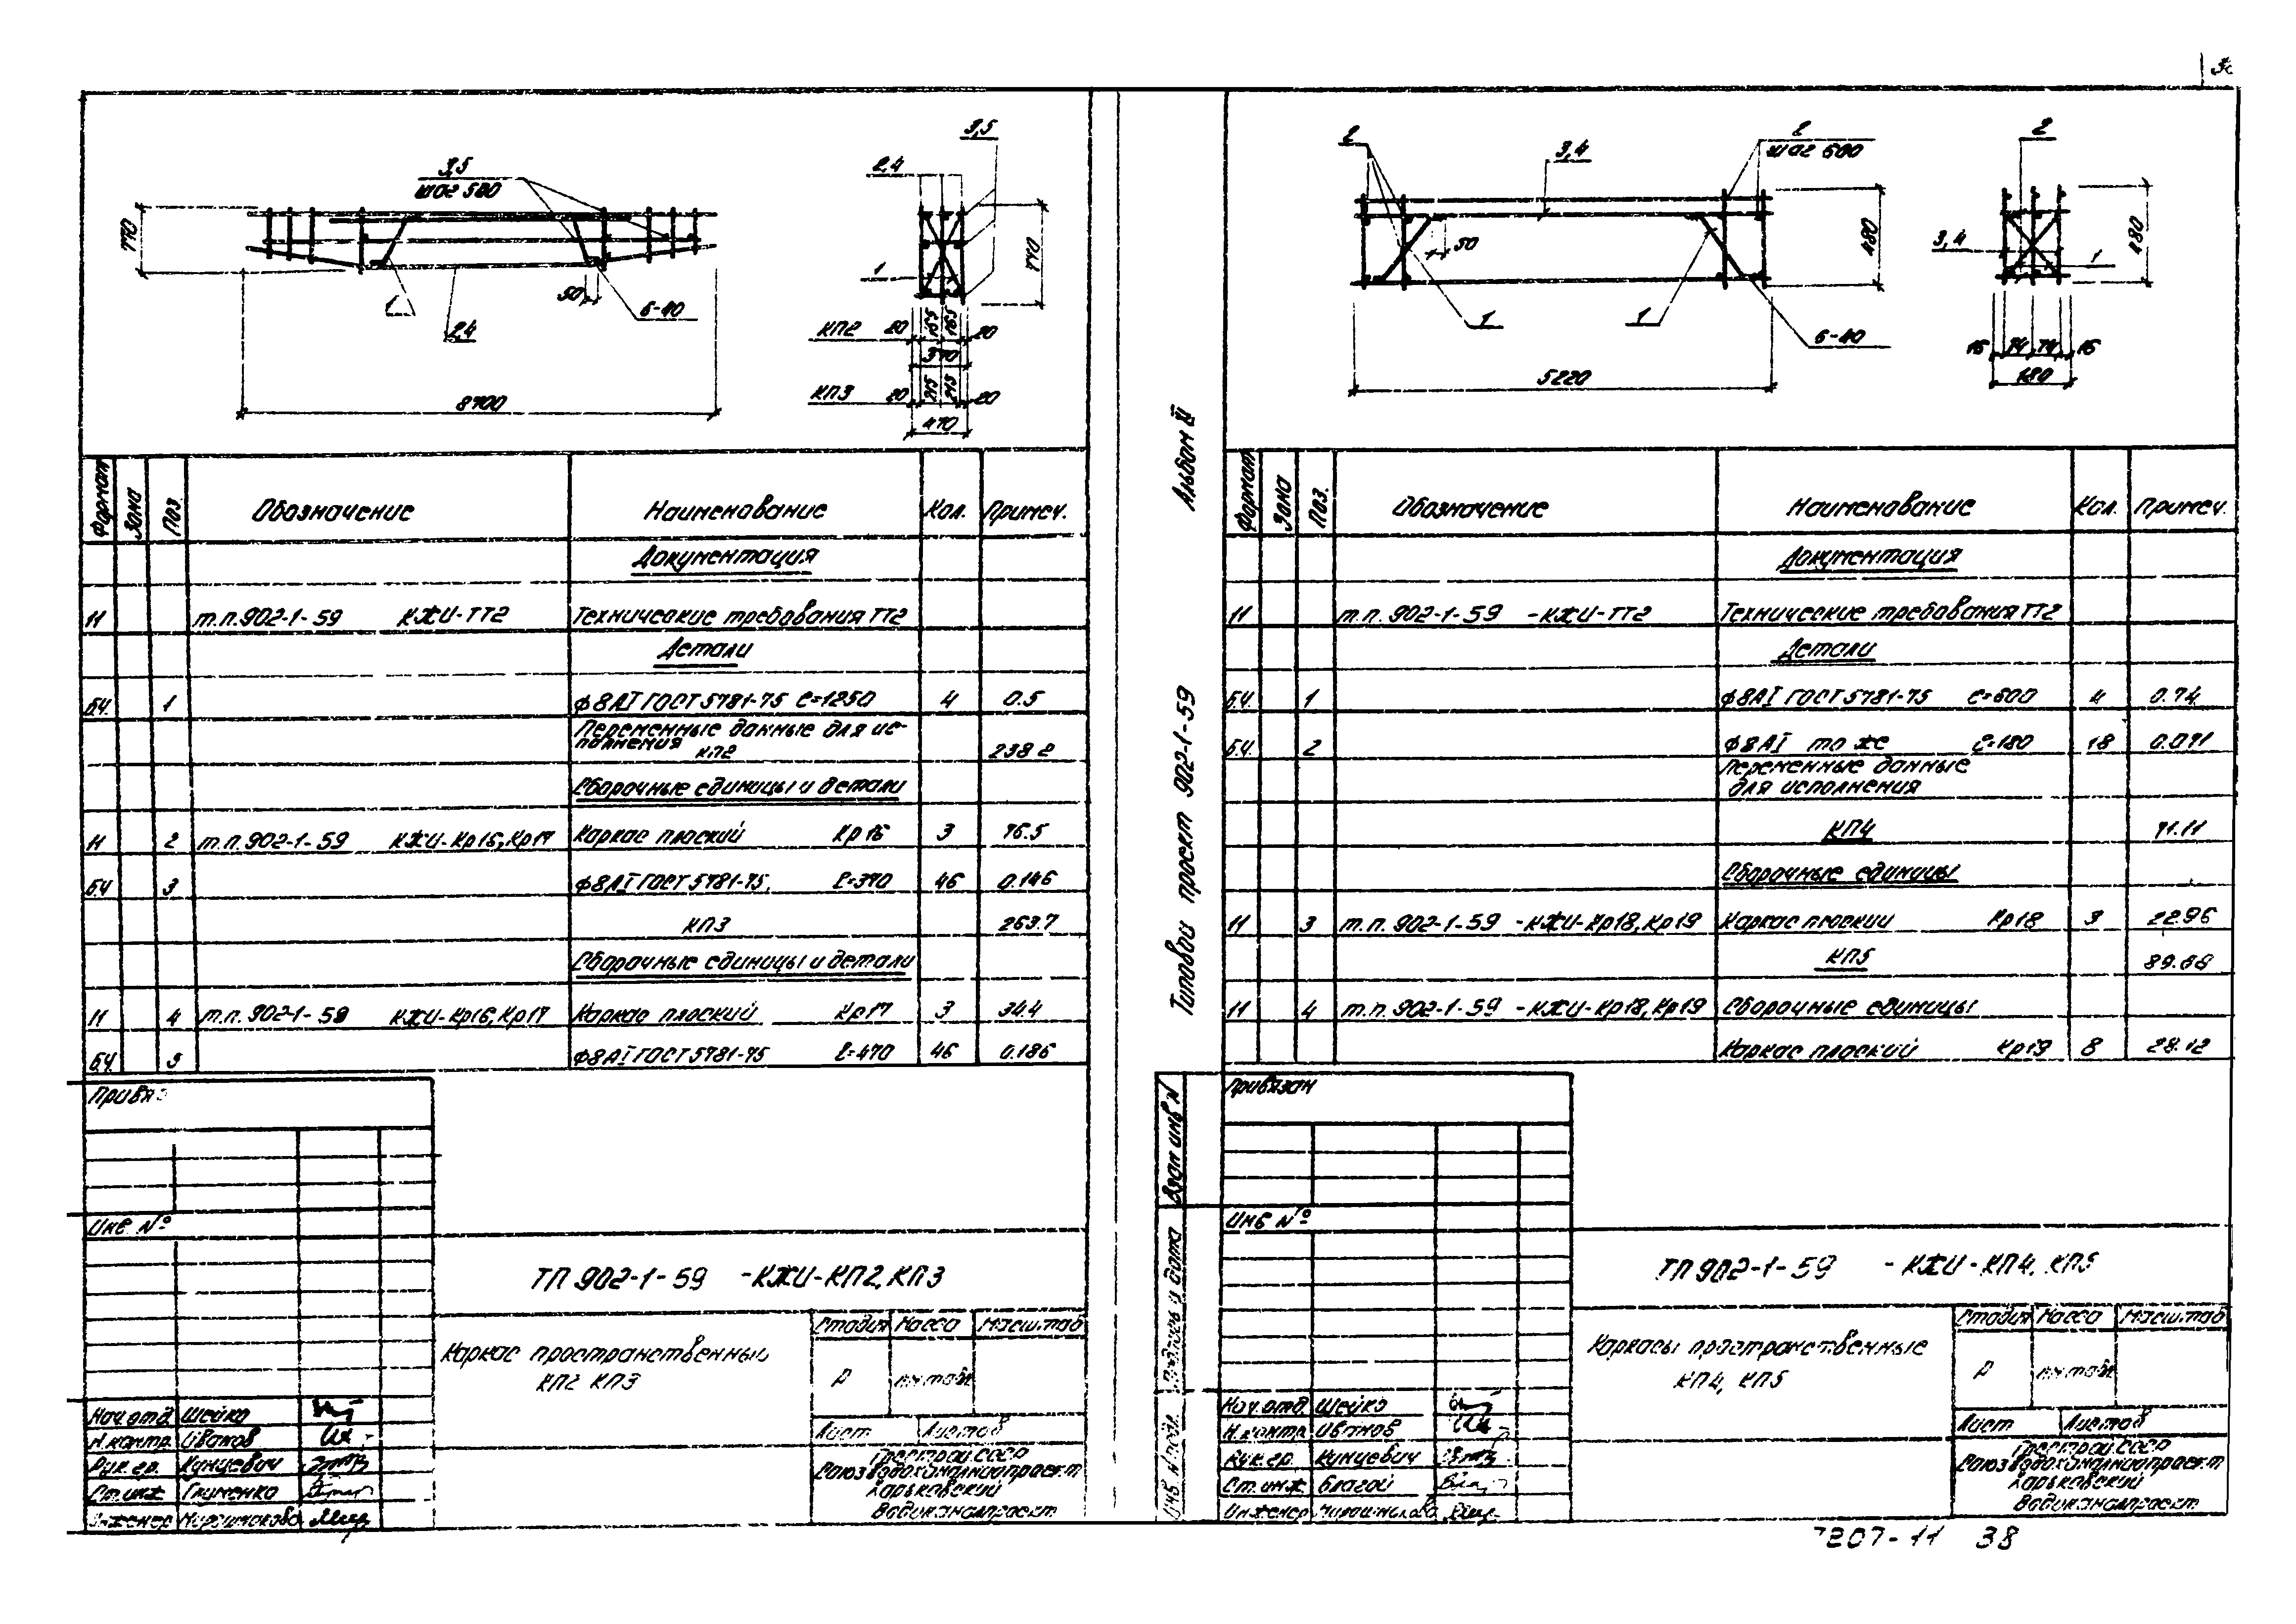 3,5
шаг 500
770
1
2,4
50
6-40
8700
3,5
2,4
1
770
КП2 20 165 165 20
370
КП3 20 215 215 20
470
Формат Зона Поз. Обозначение Наименование Кол. Примеч.
Документация
11 т.п. 902-1-59 КЖИ-ТТ2 Технические требования ТТ2
Детали
б.ч. 1 ф8АI ГОСТ 5781-75 ℓ=1250 4 0.5
Переменные данные для ис-
полнения КП2 238 2
Сборочные единицы и детали
11 2 т.п. 902-1-59 КЖИ-Кр16, Кр17 Каркас плоский Кр16 3 76.5
б.ч 3 ф8АI ГОСТ 5781-75. ℓ=370 46 0.146
КП3 263.7
Сборочные единицы и детали
11 4 т.п. 902-1-59 КЖИ-Кр16, Кр17 Каркас плоский Кр17 3
б.ч. 5 ф8АI ГОСТ 5781-75 ℓ=470 46 0.186
Привяз
Инв №
ТП 902-1-59 -КЖИ-КП2, КП3
Каркас пространственный
КП2 КП3
Стадия Масса Масштаб
Р
Лист Листов
Госстрой СССР
Союзводоканалниипроект
Харьковский
Водоканалпроект
Нач.отд Шейко
Н.контр. Иванов
Рук.гр. Кунцевич
Ст.инж Глуменко
Инженер
Альбом VI
Типовой проект 902-1-59
Взам инв N
Подпись и дата
Инв N подл.
2
3,4
2
шаг 600
480
50
1
1
6-40
5220
2
3,4
1
480
16 74 74 16
180
Формат Зона Поз. Обозначение Наименование Кол. Примеч.
Документация
11 т.п. 902-1-59 -КЖИ-ТТ2 Технические требования ТТ2
Детали
б.ч. 1 ф8АI ГОСТ 5781-75 ℓ=600 4 0.74
б.ч. 2 ф8АI то же ℓ=180 18 0.071
Переменные данные
для исполнения
КП4 71.11
Сборочные единицы
11 3 т.п. 902-1-59 -КЖИ-Кр18, Кр19 Каркас плоский Кр18 3 22.96
КП5 89.68
11 4 т.п. 902-1-59 -КЖИ-Кр18, Кр19 Сборочные единицы
Каркас плоский Кр19 8 28.12
Привязан
Инв №
ТП 902-1-59 -КЖИ-КП4, КП5
Каркасы пространственные
КП4, КП5
Стадия Масса Масштаб
Р
Лист Листов
Госстрой СССР
Союзводоканалниипроект
Харьковский
Водоканалпроект
Нач.отд Шейко
Н.контр Иванов
Рук.гр. Кунцевич
Ст.инж Благой
Инженер
7207-11 38